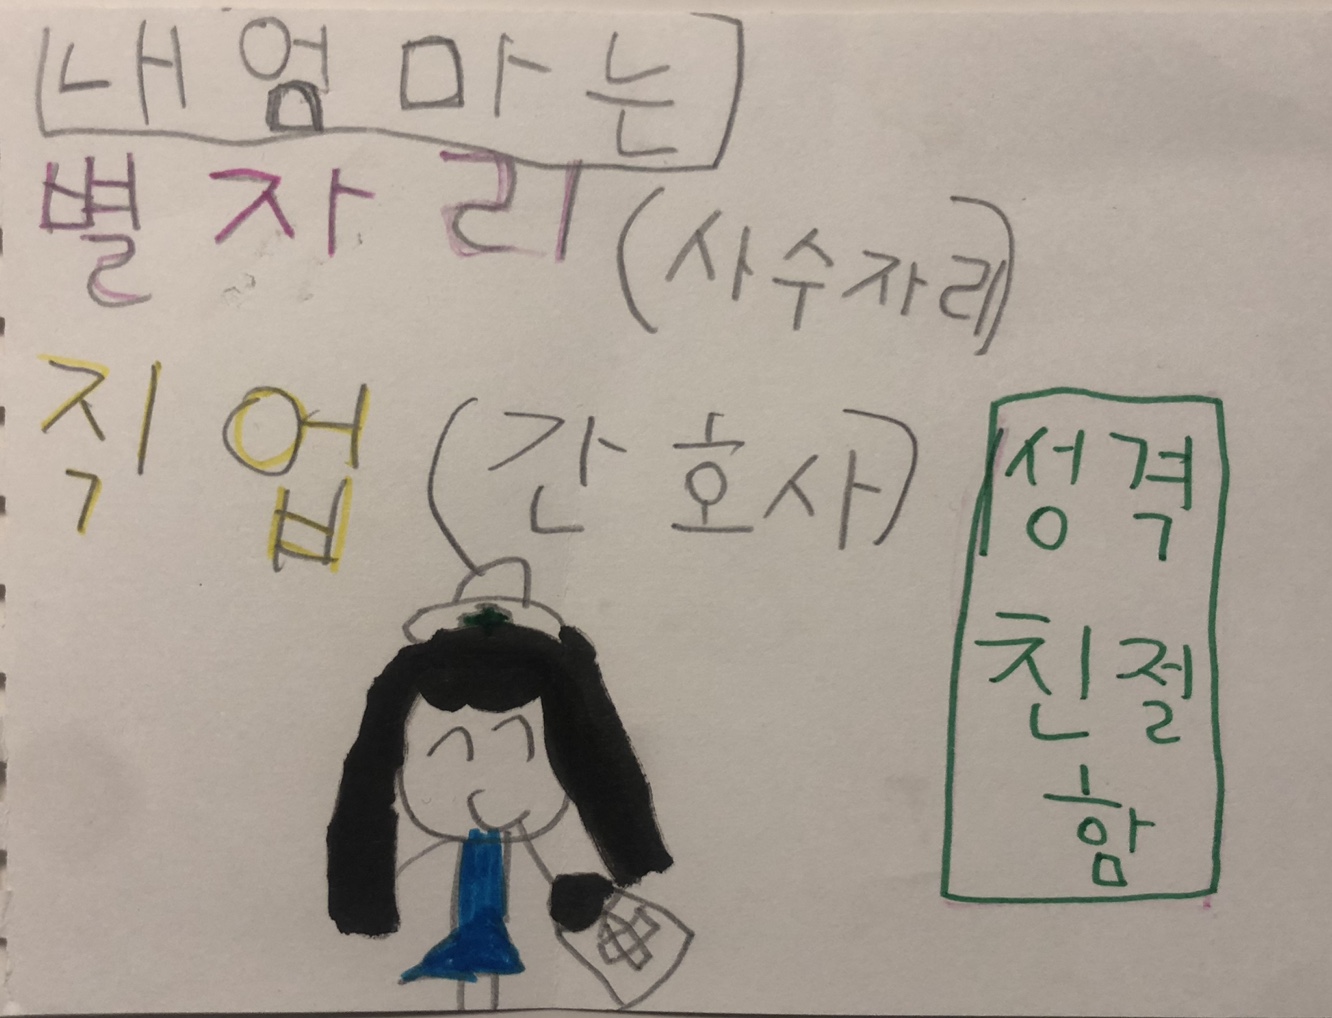 내 엄마는
별자리 (사수자리)
직업 (간호사)
성격
친절
함